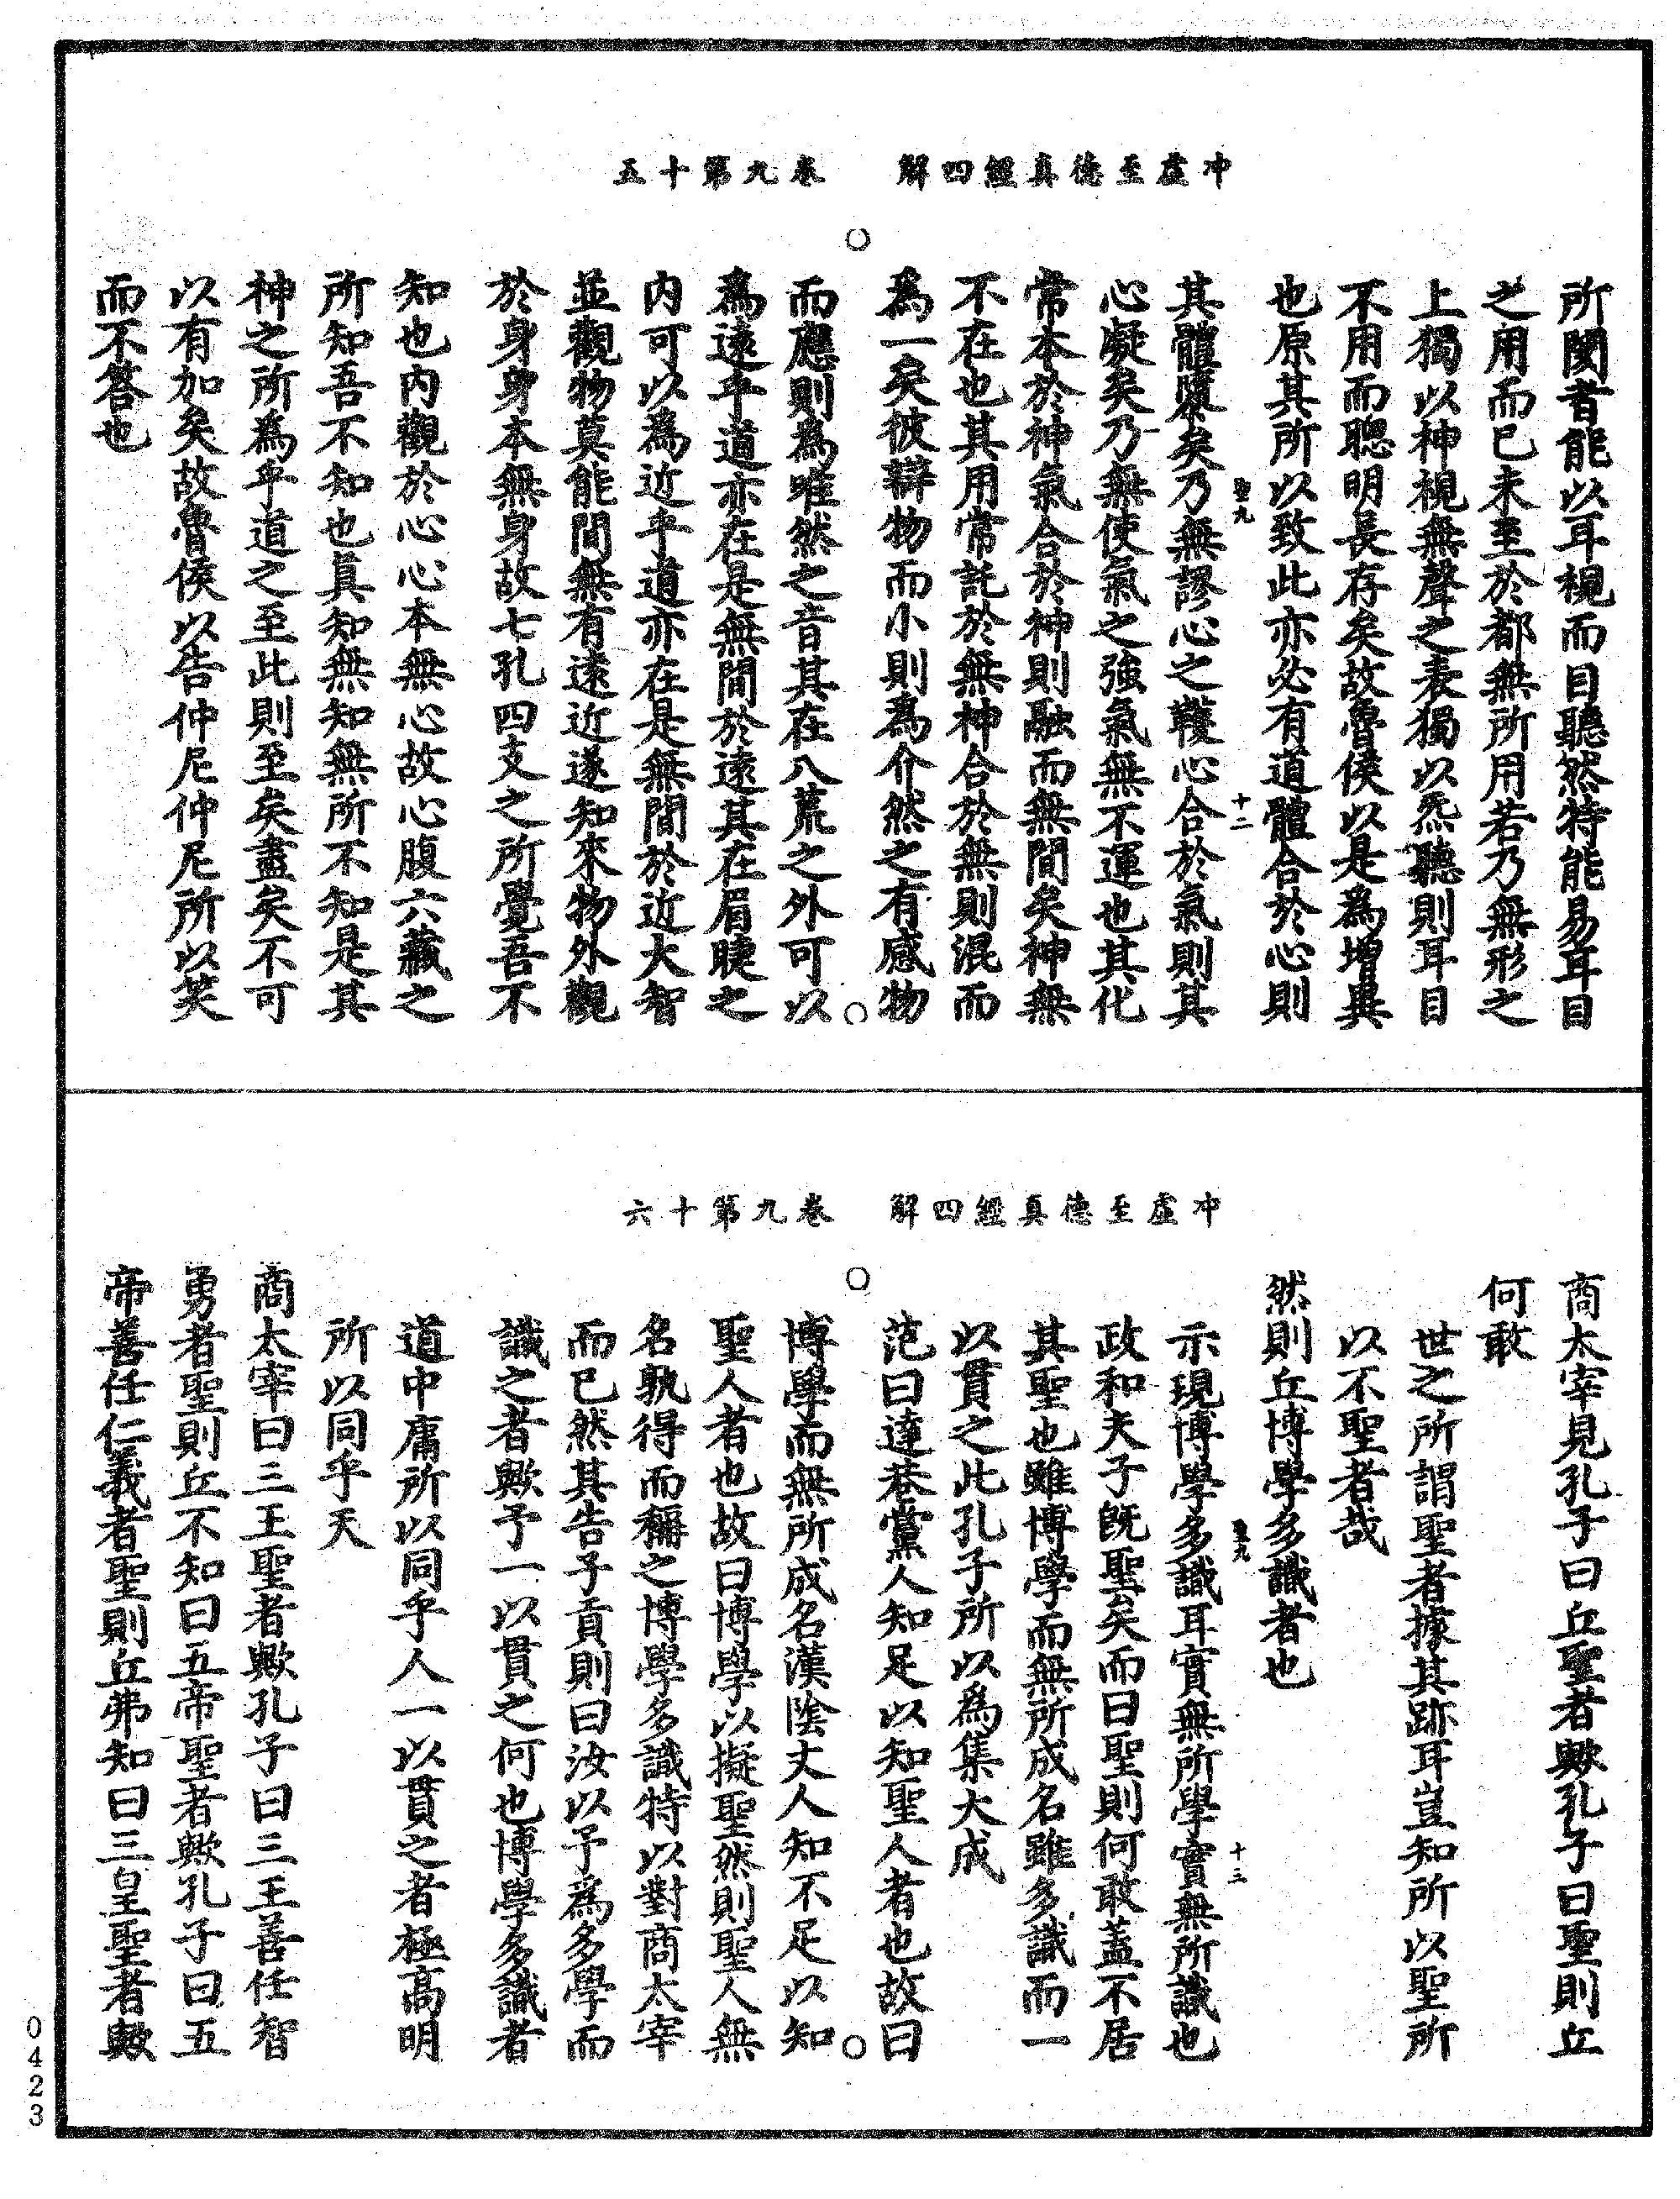 冲虛至德真經四解　卷九第十五
所閡者能以耳視而目聽然特能易耳目
之用而已未至於都無所用若乃無形之
上獨以神視無聲之表獨以炁聽則耳目
不用而聰明長存矣故魯侯以是為增異
也原其所以致此亦必有道體合於心則
聖九　十二
其體墮矣乃無謬心之鞿心合於氣則其
心凝矣乃無使氣之強氣無不運也其化
常本於神氣合於神則融而無間矣神無
不在也其用常託於無神合於無則混而
為一矣彼辯物而小則為介然之有感物
而應則為唯然之音其在八荒之外可以
為遠乎道亦在是無間於遠其在眉睫之
內可以為近乎道亦在是無間於近大智
並觀物莫能間無有遠近遂知來物外觀
於身身本無身故七孔四支之所覺吾不
知也內觀於心心本無心故心腹六藏之
所知吾不知也真知無知無所不知是其
神之所為乎道之至此則至矣盡矣不可
以有加矣故魯侯以告仲尼仲尼所以笑
而不答也
冲虛至德真經四解　卷九第十六
商太宰見孔子曰丘聖者歟孔子曰聖則丘
何敢
世之所謂聖者據其跡耳豈知所以聖所
以不聖者哉
然則丘博學多識者也
聖九　十三
示現博學多識耳實無所學實無所識也
政和夫子既聖矣而曰聖則何敢蓋不居
其聖也雖博學而無所成名雖多識而一
以貫之此孔子所以為集大成
范曰達巷黨人知足以知聖人者也故曰
博學而無所成名漢陰丈人知不足以知
聖人者也故曰博學以擬聖然則聖人無
名孰得而稱之博學多識特以對商太宰
而已然其告子貢則曰汝以予為多學而
識之者歟予一以貫之何也博學多識者
道中庸所以同乎人一以貫之者極高明
所以同乎天
商太宰曰三王聖者歟孔子曰三王善任智
勇者聖則丘不知曰五帝聖者歟孔子曰五
帝善任仁義者聖則丘弗知曰三皇聖者歟
0423